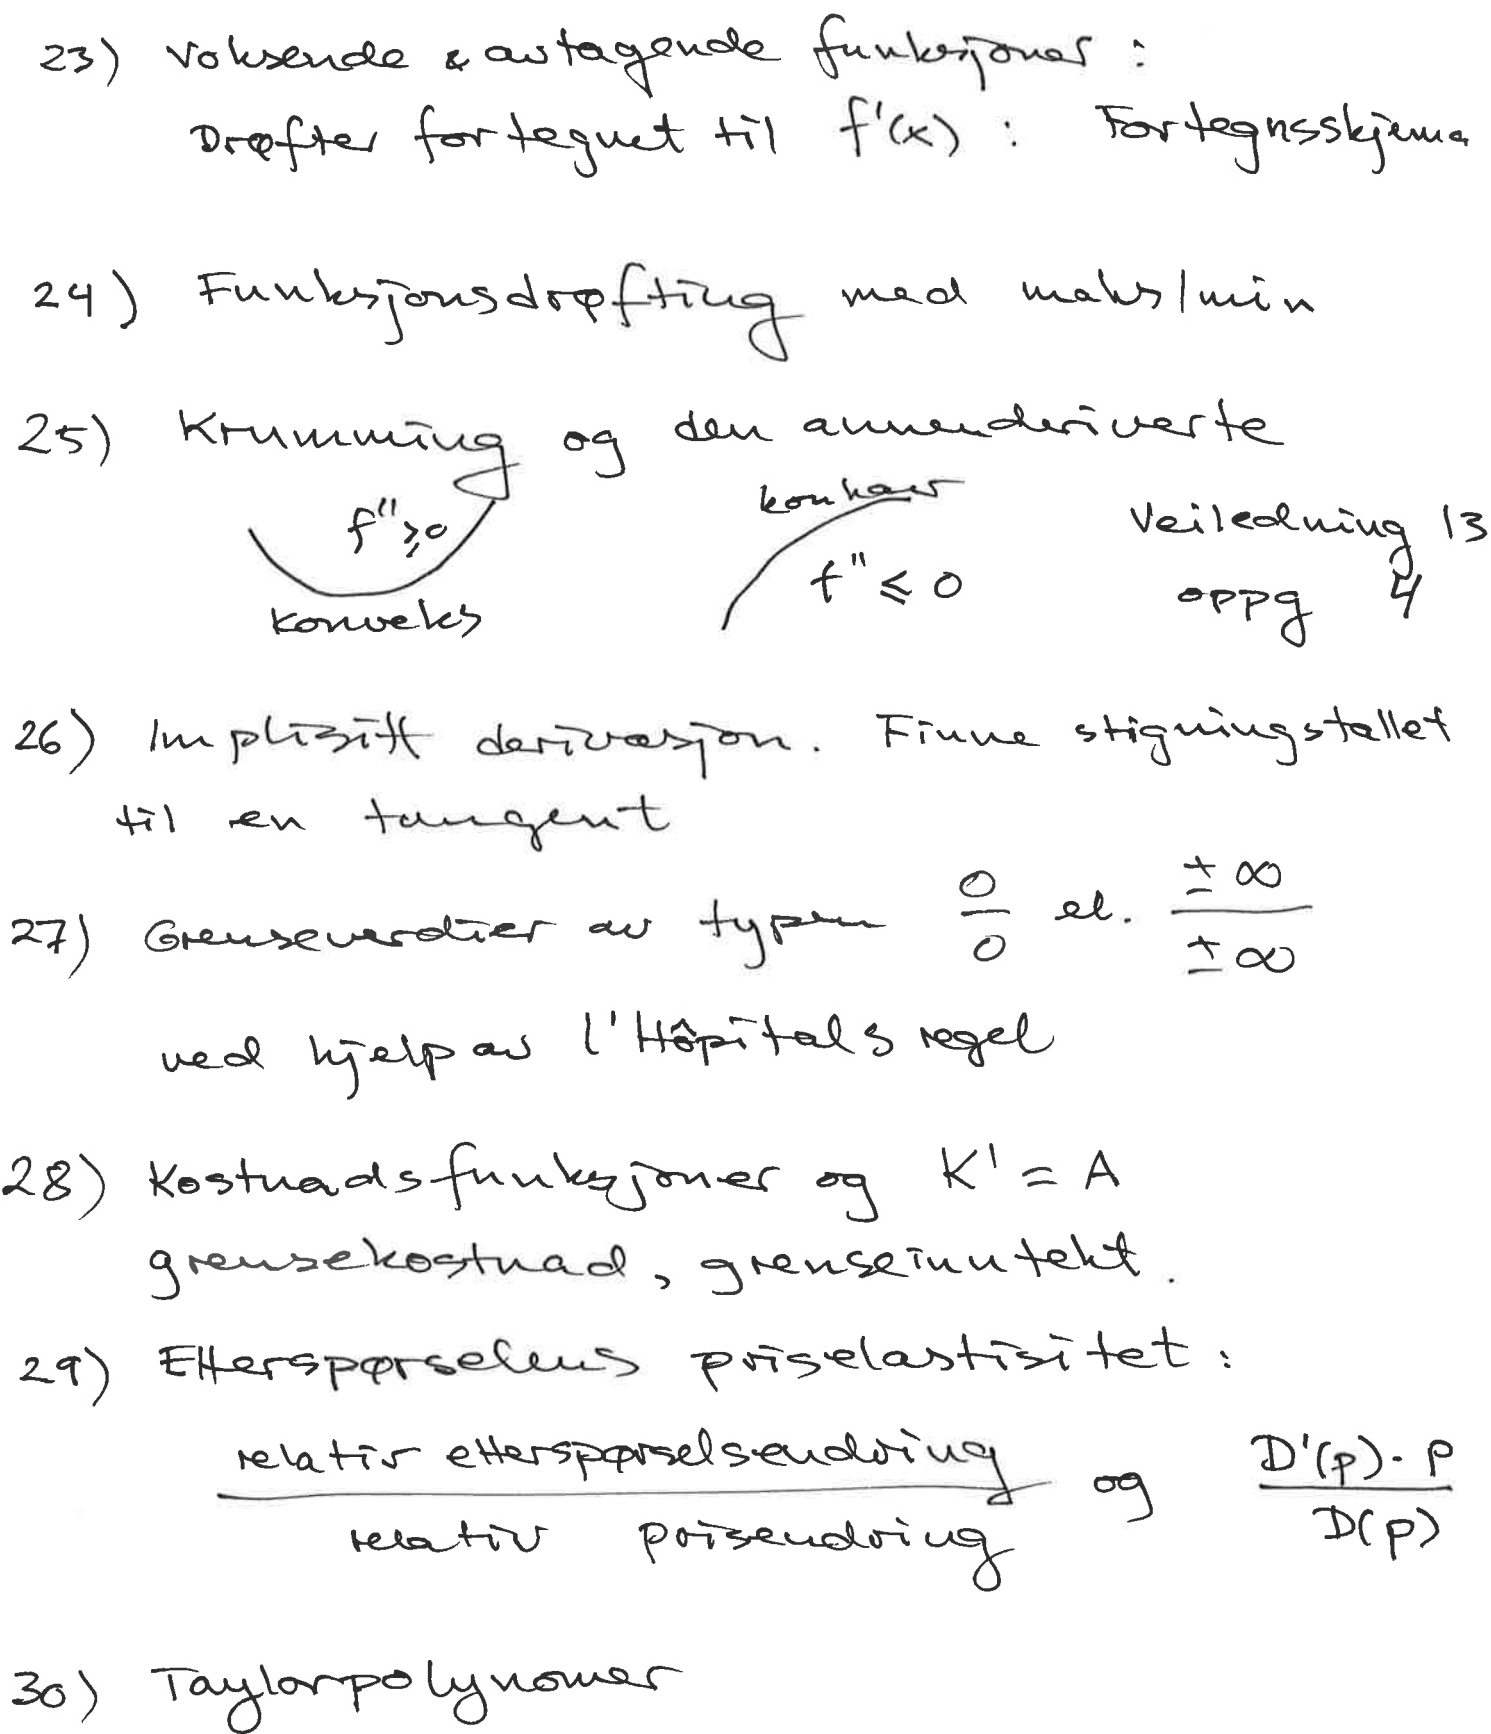 23) Voksende & avtagende funksjoner :
Drøfter fortegnet til f'(x) : Fortegnsskjema
24) Funksjonsdrøfting med maks/min
25) Krumming og den annenderiverte
f'' ⩾ 0 konkav
f'' ⩽ 0 Veiledning 13
konveks oppg 4
26) Implisitt derivasjon. Finne stigningstallet
til en tangent
27) Grenseverdier av typen 0/0 el. ±∞/±∞
ved hjelp av l'Hôpitals regel
28) Kostnadsfunksjoner og K' = A
grensekostnad, grenseinntekt.
29) Etterspørselens priselastisitet :
relativ etterspørselsendring / relativ prisendring og D'(p)·p / D(p)
30) Taylorpolynomer